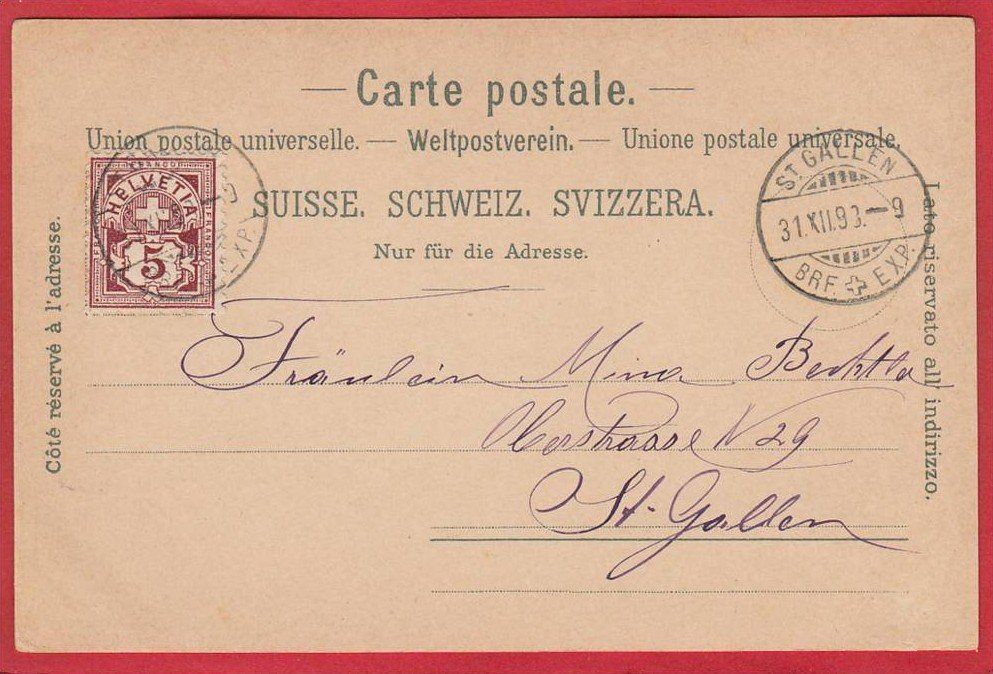 — Carte postale. —
Union postale universelle. — Weltpostverein. — Unione postale universale.
SUISSE. SCHWEIZ. SVIZZERA.
Nur für die Adresse.
Côté réservé à l'adresse.
Lato riservato all' indirizzo.
FRANCO
HELVETIA
5
EXP.
ST. GALLEN
31.XII.93.—9
BRF. EXP.
Fräulein Mina
Oberstrasse N 29
St. Gallen